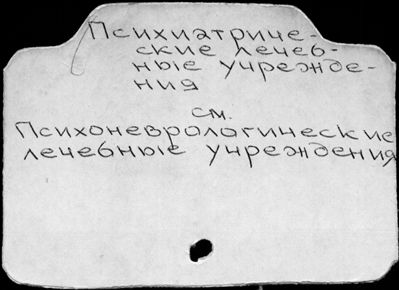 Психиатриче-
ские лечеб-
ные учрежде-
ния
см.
Психоневрологические
лечебные учреждения